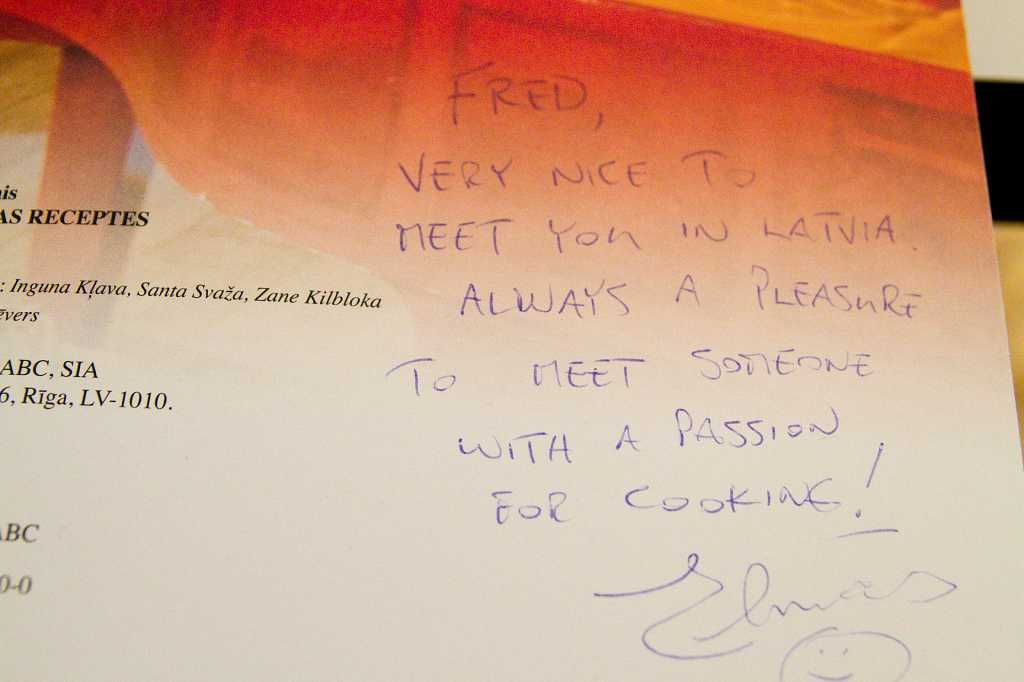 FRED,
VERY NICE TO
MEET YOU IN LATVIA.
ALWAYS A PLEASURE
TO MEET SOMEONE
WITH A PASSION
FOR COOKING!
Elmārs
nis
AS RECEPTES
: Inguna Kļava, Santa Svaža, Zane Kilbloka
ēvers
ABC, SIA
6, Rīga, LV-1010.
ABC
0-0